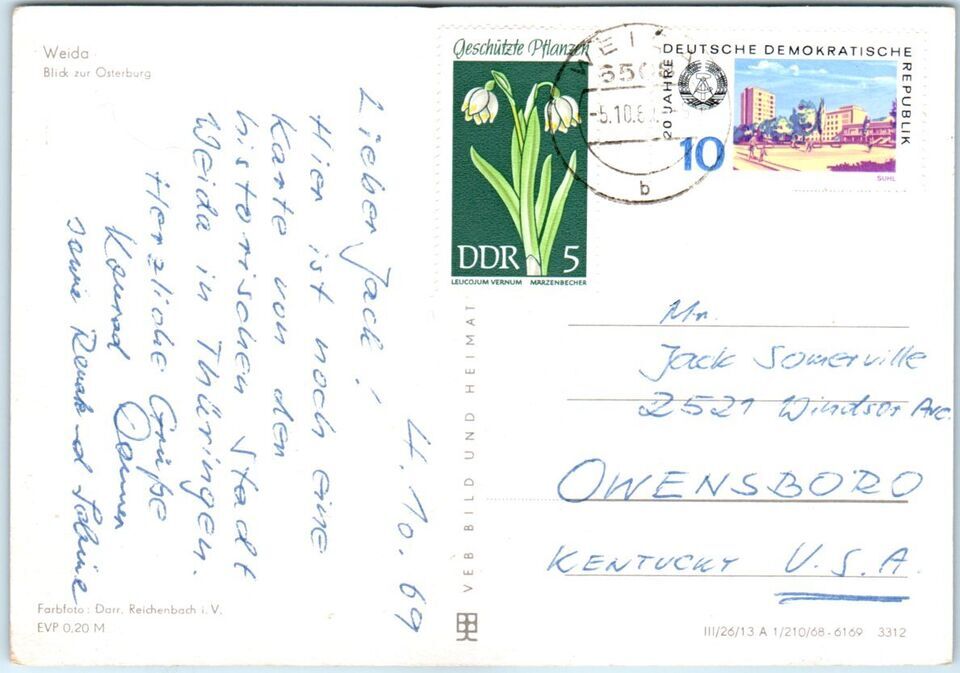 Weida
Blick zur Osterburg
4.10.69
Lieber Jack!
Hier ist noch eine
Karte von den
historischen Stadt
Weida in Thüringen.
Herzliche Grüße
Konrad
sowie Renate und Sabine
Farbfoto: Darr, Reichenbach i. V.
EVP 0,20 M
VEB BILD UND HEIMAT
Geschützte Pflanzen
DDR 5
LEUCOJUM VERNUM MÄRZENBECHER
6508
-5.10.6
b
DEUTSCHE DEMOKRATISCHE
REPUBLIK
20 JAHRE
10
SUHL
Mr.
Jack Somerville
2521 Windsor Ave.
OWENSBORO
KENTUCKY U.S.A
III/26/13 A 1/210/68-6169 3312